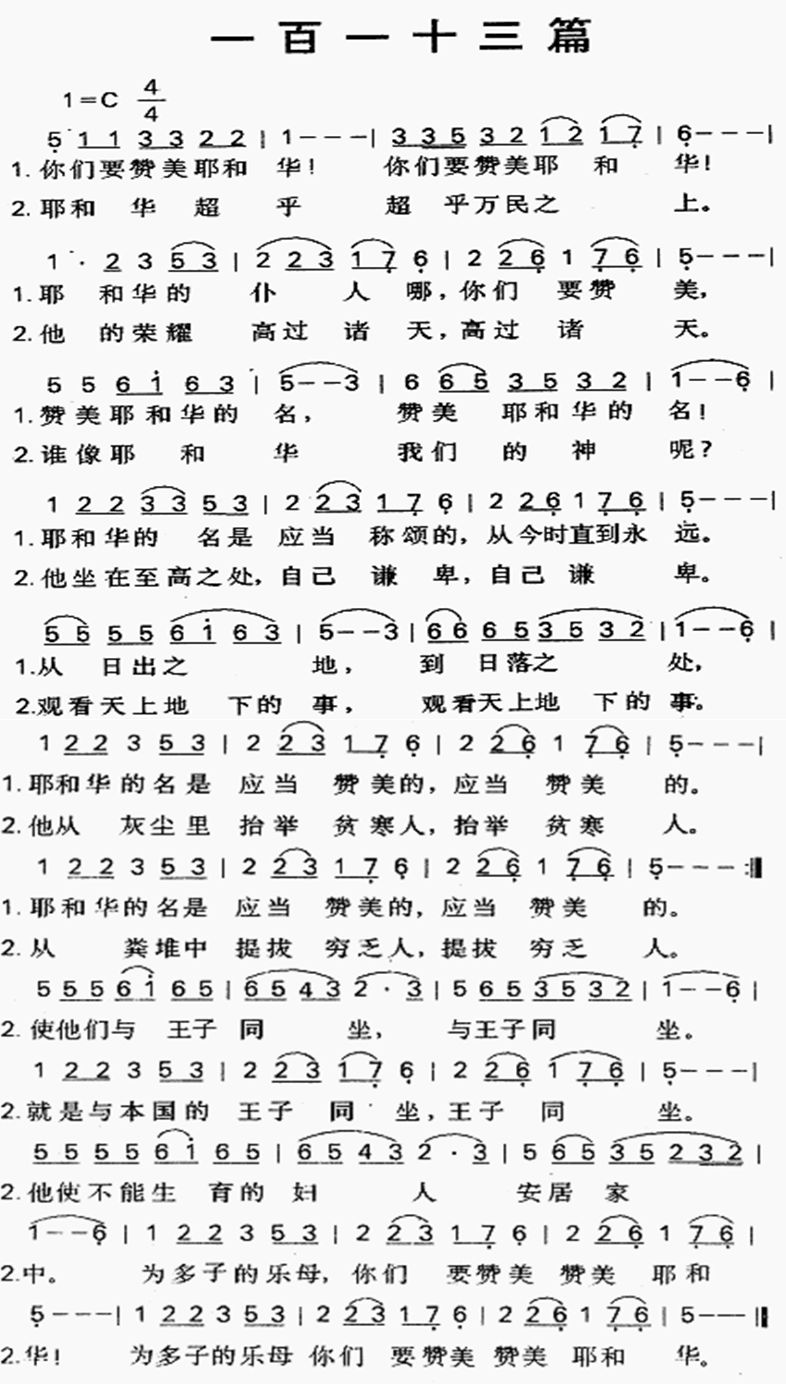 一百一十三篇
1=C 4/4
5 1 1 3 3 2 2 | 1 - - - | 3 3 3 5 3 2 1 2 1 7 | 6 - - - |
1. 你们要赞美耶和 华! 你们要赞美耶 和 华!
2. 耶和 华 超 乎 超 乎万民之 上。
1 · 2 3 5 3 | 2 2 3 1 7 6 | 2 2 6 1 7 6 | 5 - - - |
1. 耶 和华的 仆 人 哪, 你们 要赞 美,
2. 他 的荣耀 高过 诸 天, 高过 诸 天。
5 5 6 1 6 3 | 5 - - 3 | 6 6 5 3 5 3 2 | 1 - - 6 |
1. 赞美耶和华的 名, 赞美 耶和华的 名!
2. 谁像耶 和 华 我们 的 神 呢?
1 2 2 3 3 5 3 | 2 2 3 1 7 6 | 2 2 6 1 7 6 | 5 - - - |
1. 耶和华的 名是 应当 称颂的, 从今时直到永 远。
2. 他坐在至高之处, 自己 谦 卑, 自己 谦 卑。
5 5 5 5 6 1 6 3 | 5 - - 3 | 6 6 6 5 3 5 3 2 | 1 - - 6 |
1. 从 日出之 地, 到 日落之 处,
2. 观看天上地 下的 事, 观看天上地 下的 事。
1 2 2 3 5 3 | 2 2 3 1 7 6 | 2 2 6 1 7 6 | 5 - - - |
1. 耶和华的名是 应当 赞美的, 应当 赞美 的。
2. 他从 灰尘里 抬举 贫寒人, 抬举 贫寒 人。
1 2 2 3 5 3 | 2 2 3 1 7 6 | 2 2 6 1 7 6 | 5 - - - :||
1. 耶和华的名是 应当 赞美的, 应当 赞美 的。
2. 从 粪堆中 提拔 穷乏人, 提拔 穷乏 人。
5 5 5 6 1 6 5 | 6 5 4 3 2 · 3 | 5 6 5 3 5 3 2 | 1 - - 6 |
2. 使他们与 王子 同 坐, 与王子同 坐。
1 2 2 3 5 3 | 2 2 3 1 7 6 | 2 2 6 1 7 6 | 5 - - - |
2. 就是与本国的 王子 同 坐, 王子 同 坐。
5 5 5 5 6 1 6 5 | 6 5 4 3 2 · 3 | 5 6 5 3 5 2 3 2 |
2. 他使不能生 育的 妇 人 安居 家
1 - - 6 | 1 2 2 3 5 3 | 2 2 3 1 7 6 | 2 2 6 1 7 6 |
2. 中。 为多子的乐母, 你们 要赞美 赞美 耶和
5 - - - | 1 2 2 3 5 3 | 2 2 3 1 7 6 | 2 2 6 1 7 6 | 5 - - - ||
2. 华! 为多子的乐母 你们 要赞美 赞美 耶和 华。